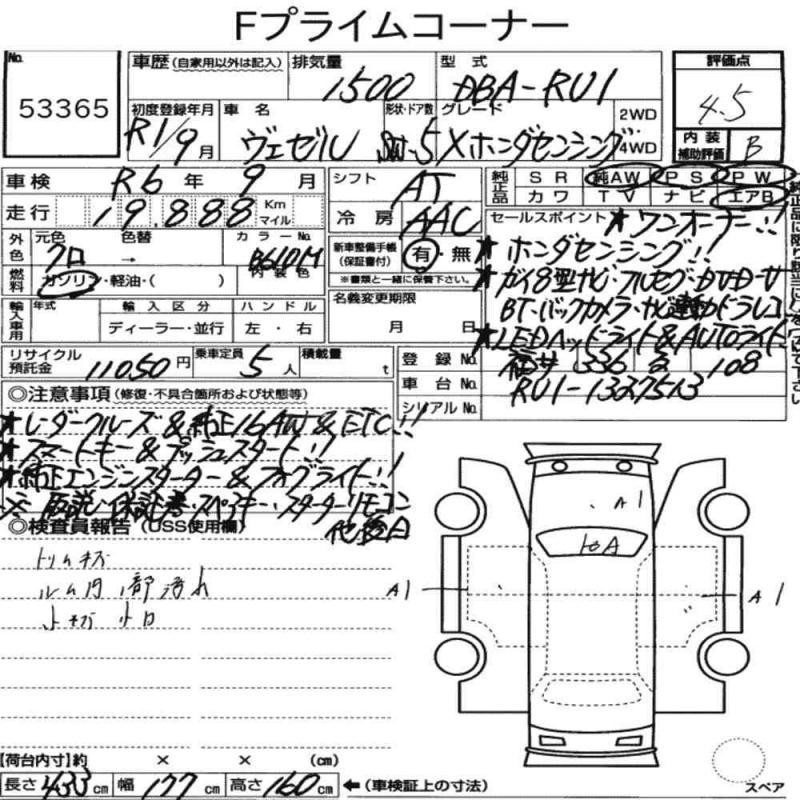 Fプライムコーナー
No. 53365
車歴 (自家用以外は記入)
排気量 1500
型式 DBA-RU1
評価点 4.5
初度登録年月 R1/9月
車名 ヴェゼル
形状・ドア数 SW-5
グレード Xホンダセンシング
2WD
4WD
内装補助評価 B
車検 R6年9月
シフト AT
純正品 SR 純AW PS PW
カワ TV ナビ エアB
走行 19,888 Km マイル
冷房 AAC
外色 元色 クロ 色替 →
カラーNo. B610M
内装色
新車整備手帳(保証書付) 有・無
※書類と一緒に保管下さい。
燃料 ガソリン・軽油・( )
セールスポイント ★ワンオーナー!!
★ホンダセンシング!!
★ガイ8型ナビ・フルセグ・DVD・サ
BT・バックカメラ・ナビ連動ドラレコ
★LEDヘッドライト&AUTOライト
輸入車用 年式 輸入区分 ハンドル
ディーラー・並行 左・右
名義変更期限 月 日
リサイクル預託金 11050円
乗車定員 5人
積載量 t
登録No. 336 108
車台No. RU1-1327513
シリアルNo.
◎注意事項 (修復・不具合箇所および状態等)
★レーダークルーズ&純正16AW&ETC!!
★スマートキー&プッシュスタート!!
★純正エンジンスターター&フォグライト!!
※取説・保証書・スペアキー・スターターリモコン
他後日
◎検査員報告 (USS使用欄)
トリムキズ
ルーム内一部汚れ
A1
トのA
A1
A1
【荷台内寸】約 × × (cm)
長さ 433 cm 幅 177 cm 高さ 160 cm ←(車検証上の寸法)
スペア